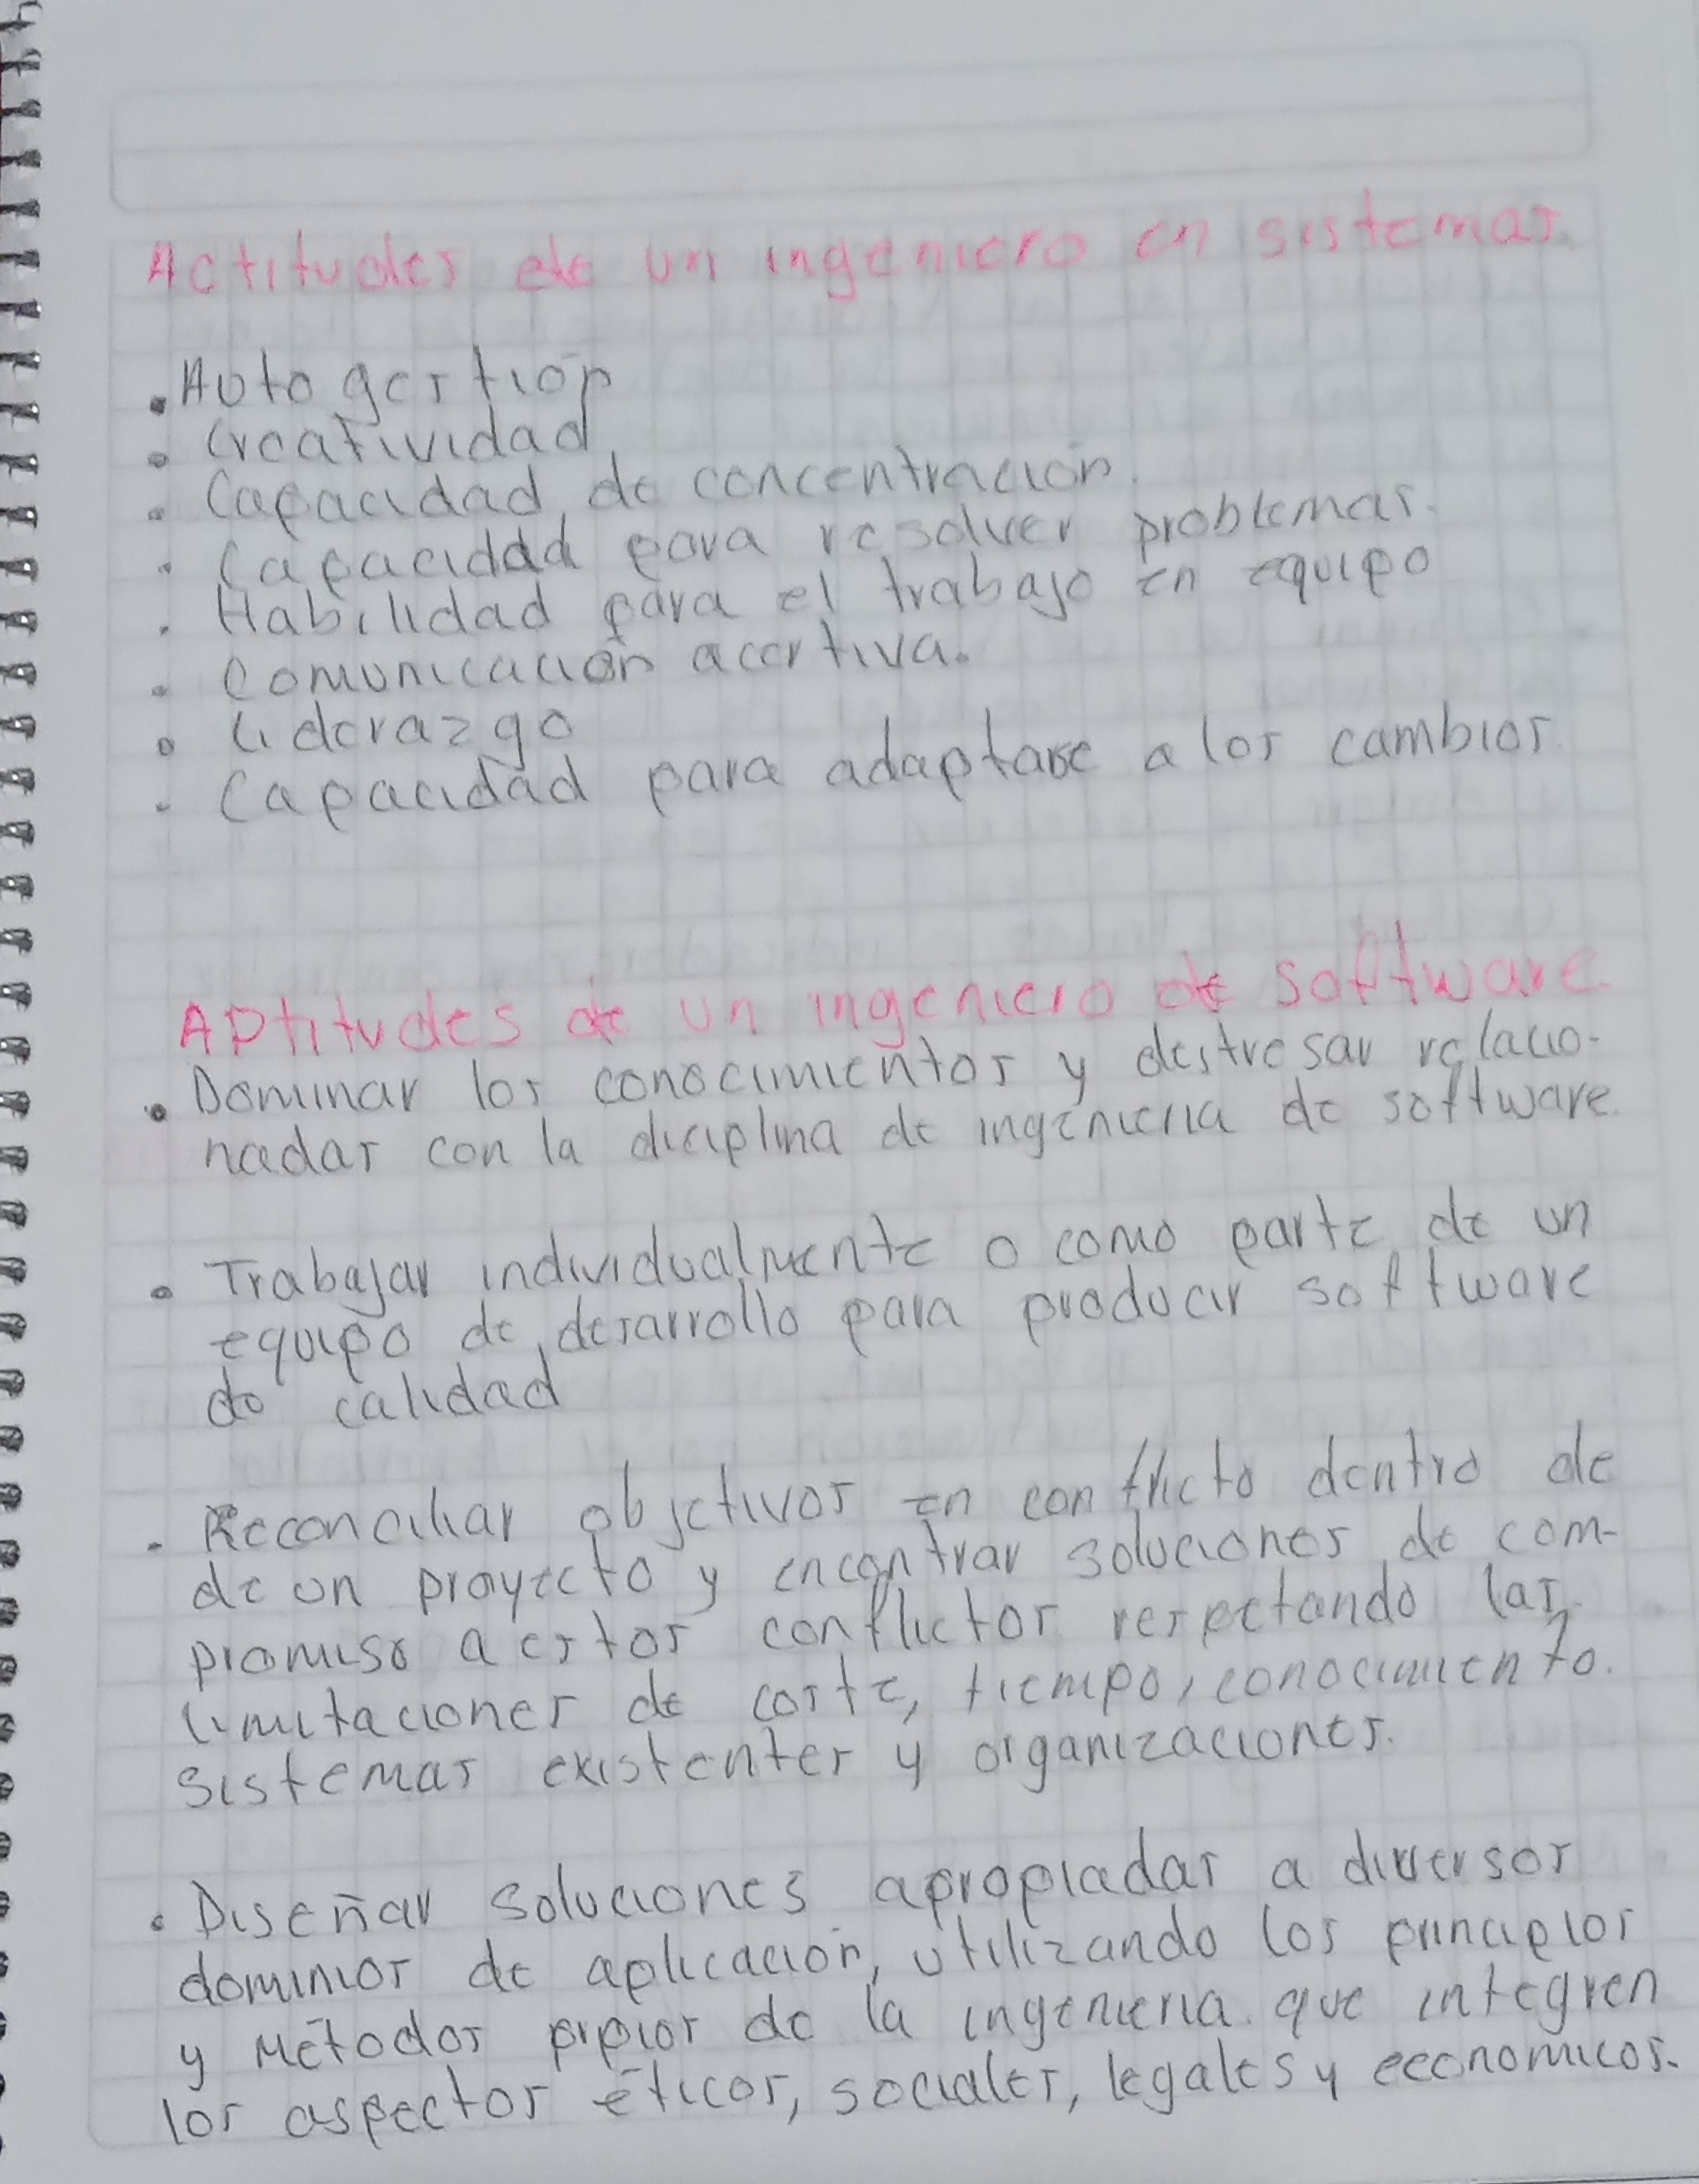 Actitudes de un ingeniero en sistemas.
• Auto gestión
• Creatividad
• Capacidad de concentración.
• Capacidad para resolver problemas.
• Habilidad para el trabajo en equipo
• Comunicación acertiva.
• Liderazgo
• Capacidad para adaptarse a los cambios
Aptitudes de un ingeniero de software
• Dominar los conocimientos y destresas relacio-
nadas con la diciplina de ingenieria de software.
• Trabajar individualmente o como parte de un
equipo de desarrollo para producir software
de calidad
• Reconciliar objetivos en conflicto dentro de
de un proyecto y encontrar soluciones de com-
promiso a estos conflictos respetando las
limitaciones de coste, tiempo, conocimiento.
sistemas existentes y organizaciones.
• Diseñar soluciones apropiadas a diversos
dominios de aplicación, utilizando los principios
y métodos propios de la ingenieria. que integren
los aspectos éticos, sociales, legales y economicos.